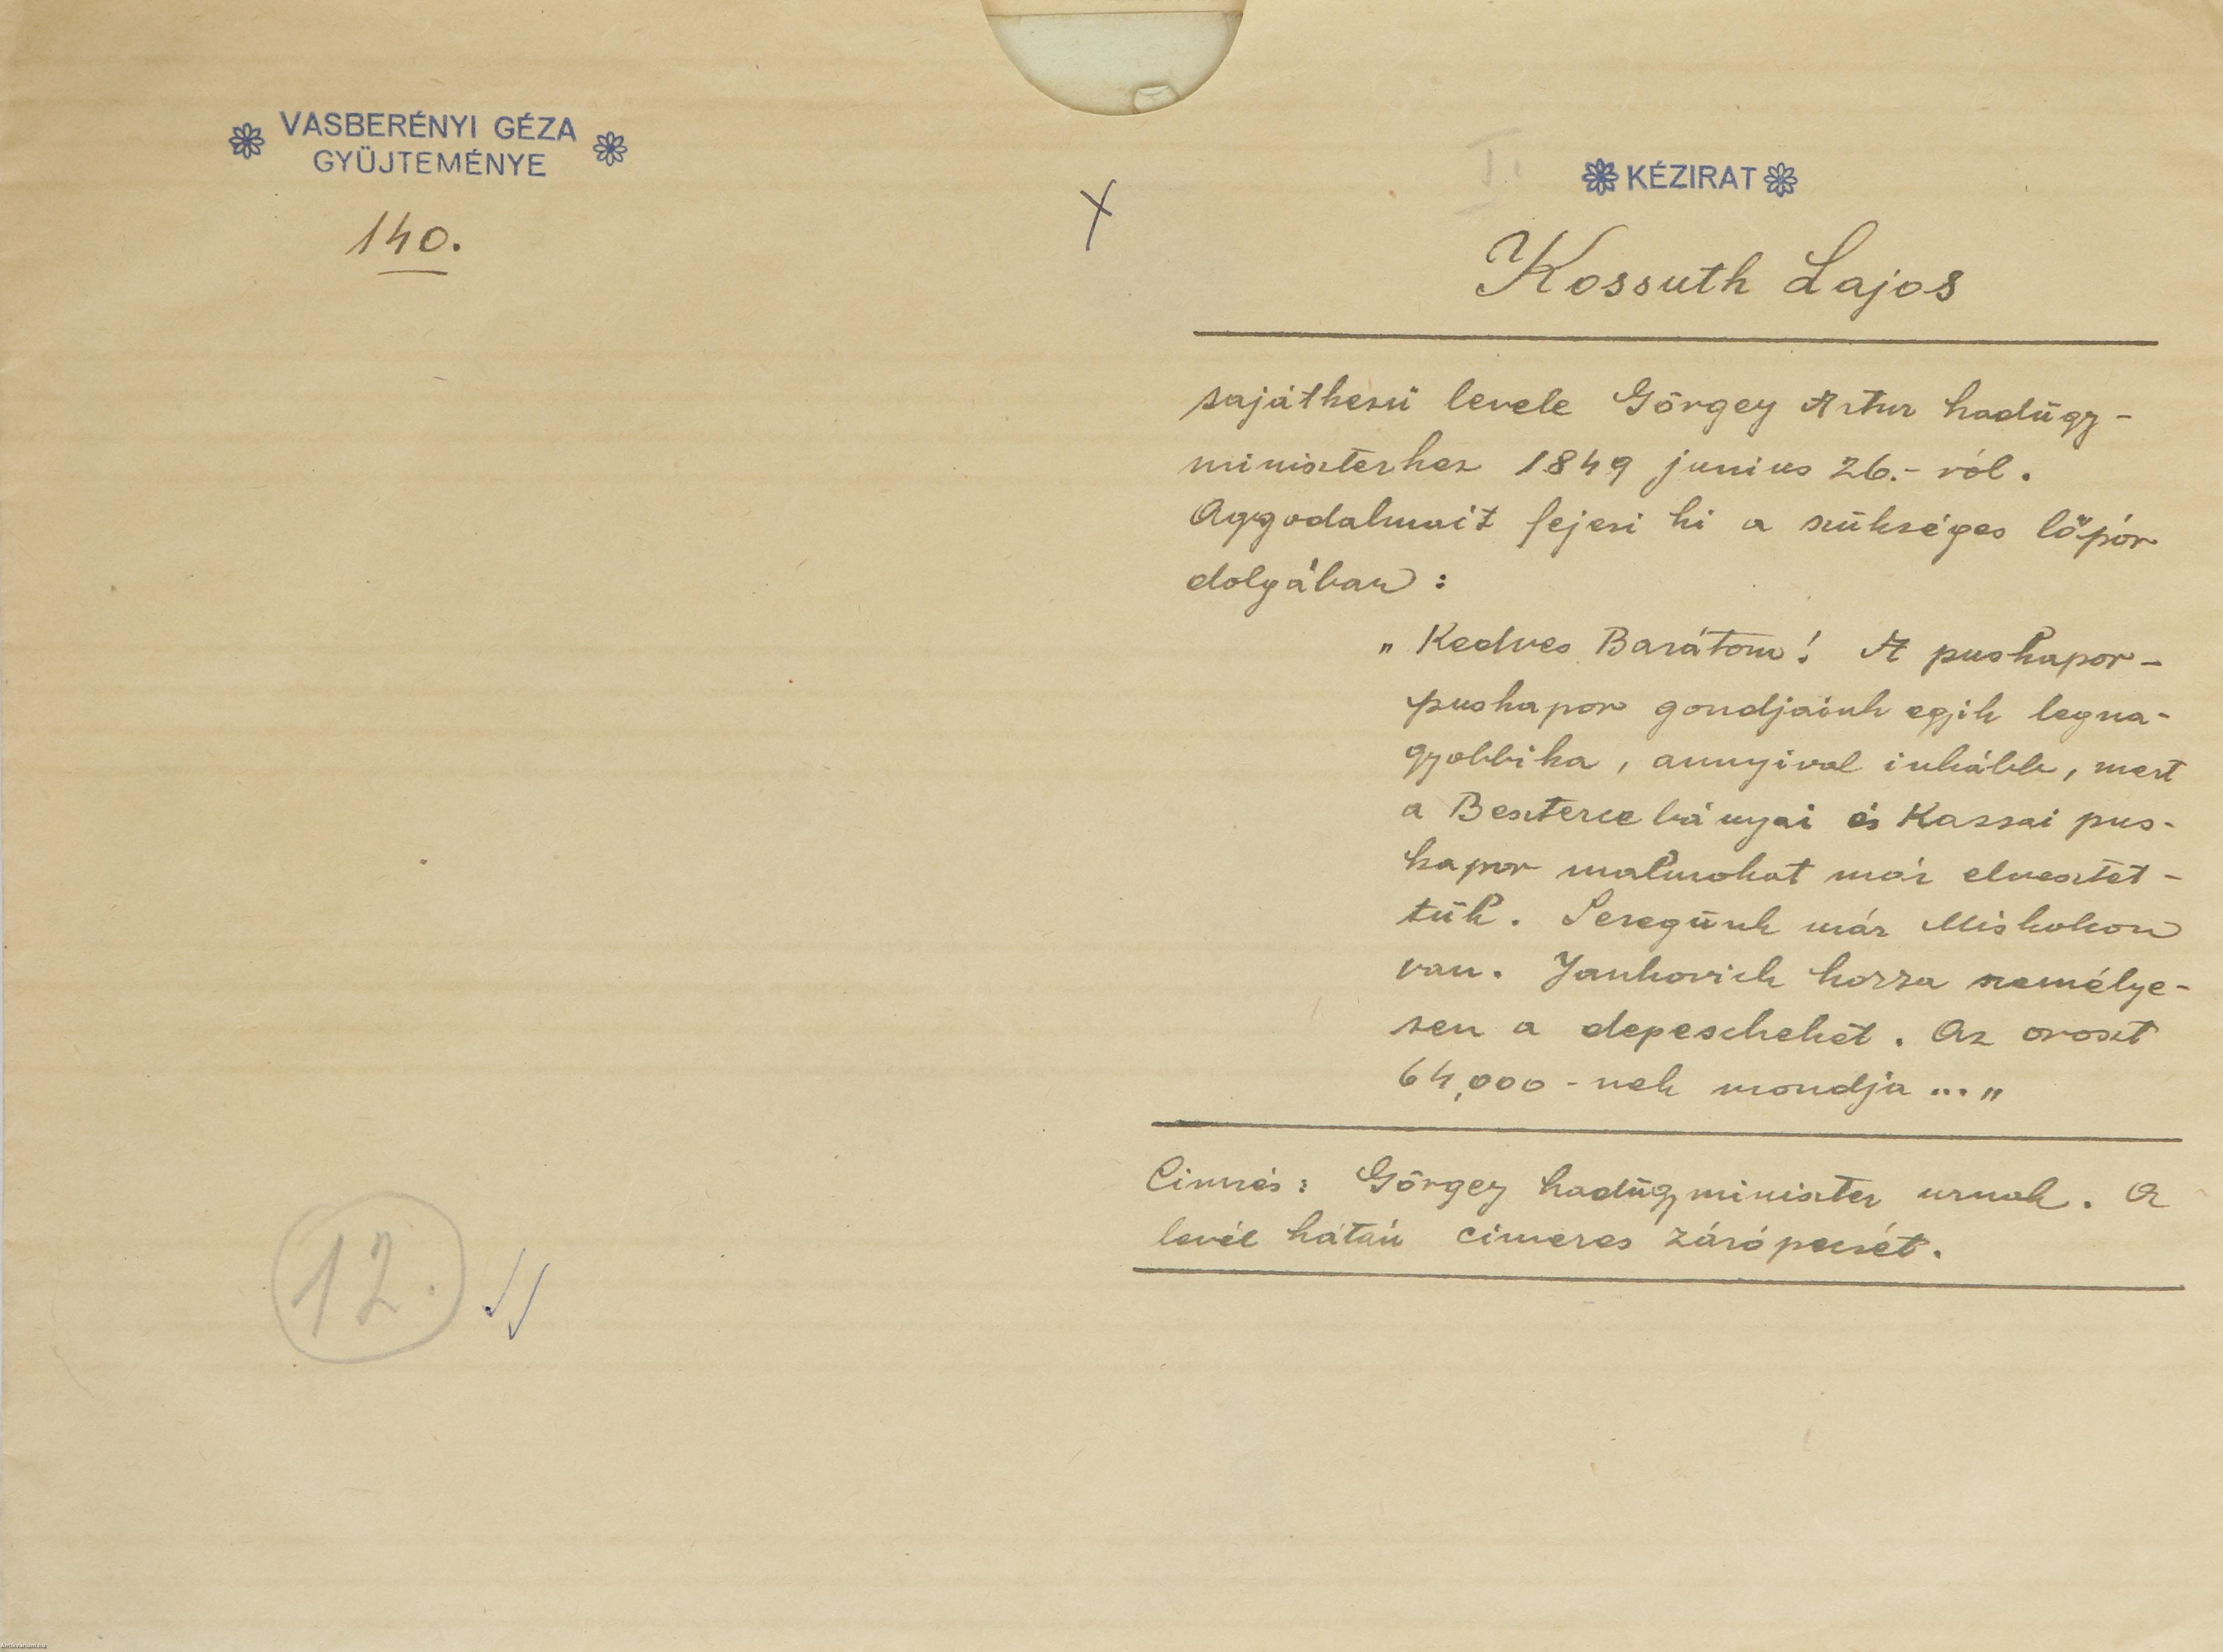 VASBERÉNYI GÉZA
GYÜJTEMÉNYE
140.
X
I.
KÉZIRAT
Kossuth Lajos
sajátkezü levele Görgey Artur hadügy-
miniszterhez 1849 junius 26.-ról.
Aggodalmait fejezi ki a szükséges lőpor
dolgában:
„Kedves Barátom! A puskapor-
puskapor gondjaink egyik legna-
gyobbika, annyival inkább, mert
a Beszterce bányai és Kassai pus-
kapor malmokat már elvesztet-
tük. Seregünk már Miskolcon
van. Jankovich hozza személye-
sen a depescheket. Az oroszt
64,000-nek mondja ..."
Cimzés: Görgey hadügyminiszter urnak. A
levél hátán cimeres zárópecsét.
12.